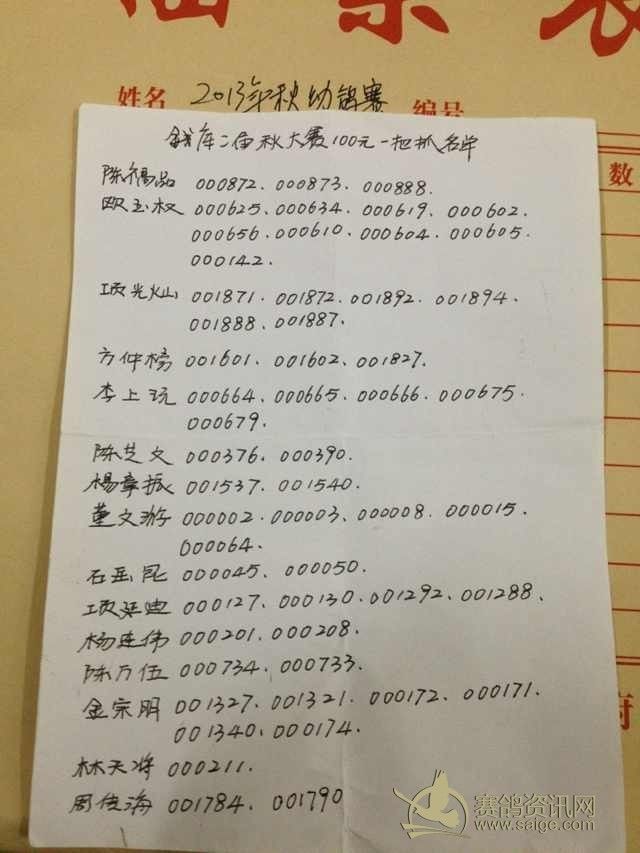 档案袋
姓名 2013年秋幼鸽赛 编号
数
钱库二届秋大赛100元一把抓名单
陈福品 000872. 000873. 000888.
欧玉权 000625. 000634. 000619. 000602.
000656. 000610. 000604. 000605.
000142.
项光灿 001871. 001872. 001892. 001894.
001888. 001887.
方仲榜 001601. 001602. 001827.
李上玩 000664. 000665. 000666. 000675.
000679.
陈芝文 000376. 000390.
杨章振 001537. 001540.
董文游 000002. 000003. 000008. 000015.
000064.
石岳昆 000045. 000050.
项延迪 000127. 000130. 001292. 001288.
杨连伟 000201. 000208.
陈万伍 000734. 000733.
金宗明 001327. 001321. 000172. 000171.
001340. 000174.
林天将 000211.
周传海 001784. 001790
赛鸽资讯网
www.saige.com